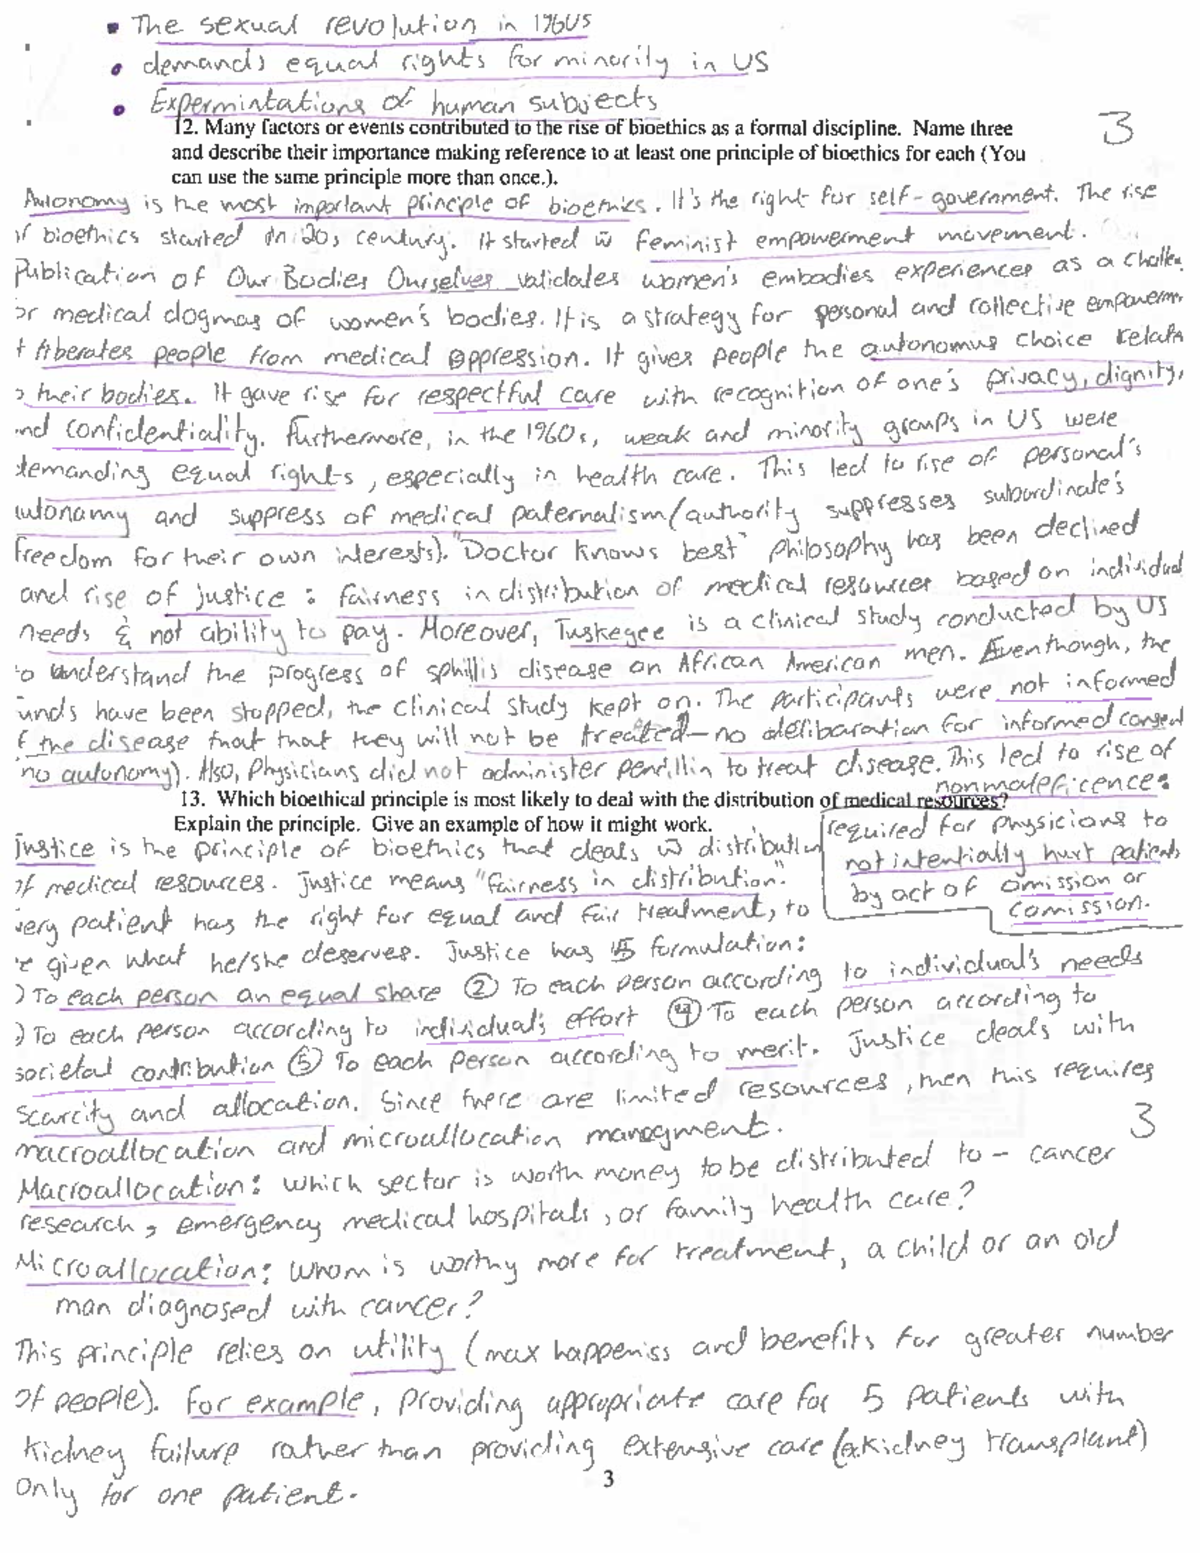 The sexual revolution in 1960s
demands equal rights for minority in US
Expermintations of human subjects
12. Many factors or events contributed to the rise of bioethics as a formal discipline. Name three
and describe their importance making reference to at least one principle of bioethics for each (You
can use the same principle more than once.).
3
Autonomy is the most important principle of bioethics. It's the right for self-government. The rise
of bioethics started in 20s century. It started w feminist empowerment movement.
Publication of Our Bodies Ourselves validates women's embodies experiences as a challen
or medical dogmas of women's bodies. It is a strategy for personal and collective empowerm
t liberates people from medical oppression. It gives people the autonomus choice relat
o their bodies. It gave rise for respectful care with recognition of one's privacy, dignity,
nd confidentiality. Furthermore, in the 1960s, weak and minority groups in US were
demanding equal rights, especially in health care. This led to rise of personal's
autonamy and suppress of medical paternalism (authority suppresses subordinate's
freedom for their own interests). "Doctor knows best" philosophy has been declined
and rise of justice: fairness in distribution of medical resources based on individual
needs & not ability to pay. Moreover, Tuskegee is a clinical study conducted by US
to understand the progress of sphillis disease on African American men. Eventhough, the
unds have been stopped, the clinical study kept on. The participants were not informed
f the disease that that they will not be treated - no deliberation for informed consent
(no autonomy). Also, Physicians did not administer penrillin to treat disease. This led to rise of
nonmaleficence:
required for physicians to
not intentionally hurt patients
by act of omission or
comission.
13. Which bioethical principle is most likely to deal with the distribution of medical resources?
Explain the principle. Give an example of how it might work.
Justice is the principle of bioethics that deals w distribution
of medical resources. Justice means "fairness in distribution."
very patient has the right for equal and fair treatment, to
e given what he/she deserves. Justice has 5 formulation:
) To each person an equal share ② To each person according to individual's needs
) To each person according to individual's effort ④ To each person according to
societal contribution ⑤ To each person according to merit. Justice deals with
scarcity and allocation. Since there are limited resources, then this requires
macroallocation and microallocation managment.
3
Macroallocation: which sector is worth money to be distributed to - cancer
research, emergency medical hospitals, or family health care?
Microallocation: whom is worthy more for treatment, a child or an old
man diagnosed with cancer?
This principle relies on utility (max happeniss and benefits for greater number
of people). For example, providing appropriate care for 5 patients with
kidney failure rather than providing extensive care (a kidney transplant)
only for one patient.
3